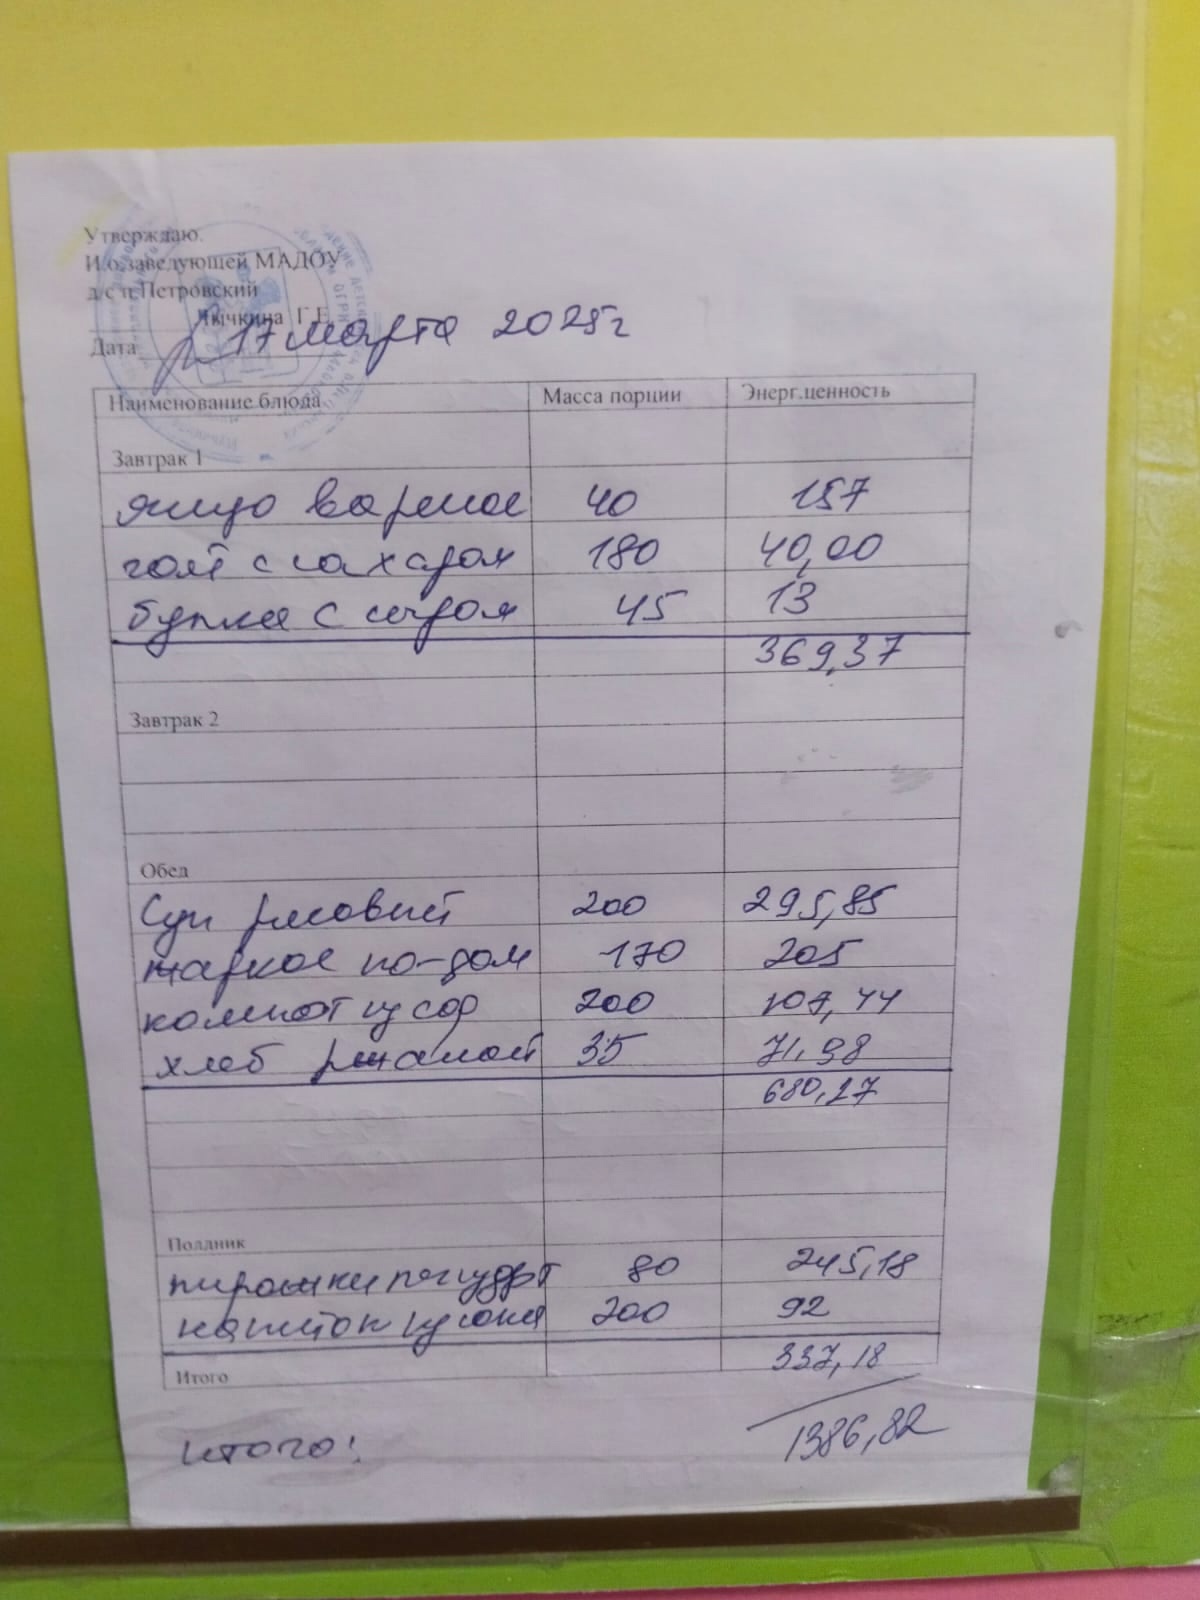 Утверждаю.
И.о.заведующей МАДОУ
д/с п.Петровский
Лычкина Г.Е.
Дата 17 марта 2025г
Наименование блюда Масса порции Энерг.ценность
Завтрак 1
яйцо варное 40 157
чай с сахаром 180 40,00
булка с сыром 45 13
369,37
Завтрак 2
Обед
Суп рисовый 200 295,85
жаркое по-дом 170 205
компот из сф 200 107,44
хлеб ржаной 35 71,98
680,27
Полдник
пирожки печ 80 245,18
напиток из 200 92
337,18
Итого
1386,82
итого!